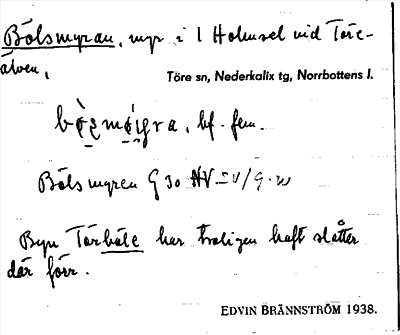 Bölsmyran, myr i l Holmsel vid Töre-
älven,
Töre sn, Nederkalix tg, Norrbottens l.
bf. fem.
Bölsmyren G 30
Byn Törböle har troligen haft slåtter
där förr.
EDVIN BRÄNNSTRÖM 1938.